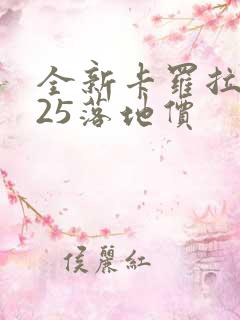 全新卡羅拉
25落地價
侯麗紅